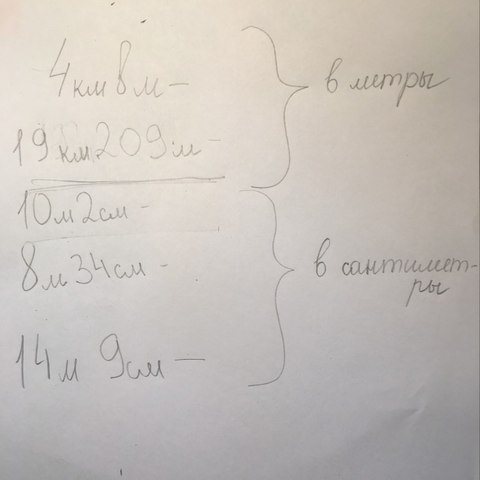 4км 8м -
в метры
19км 209м -
10м 2см -
8м 34см -
в сантимет-
ры
14м 9см -